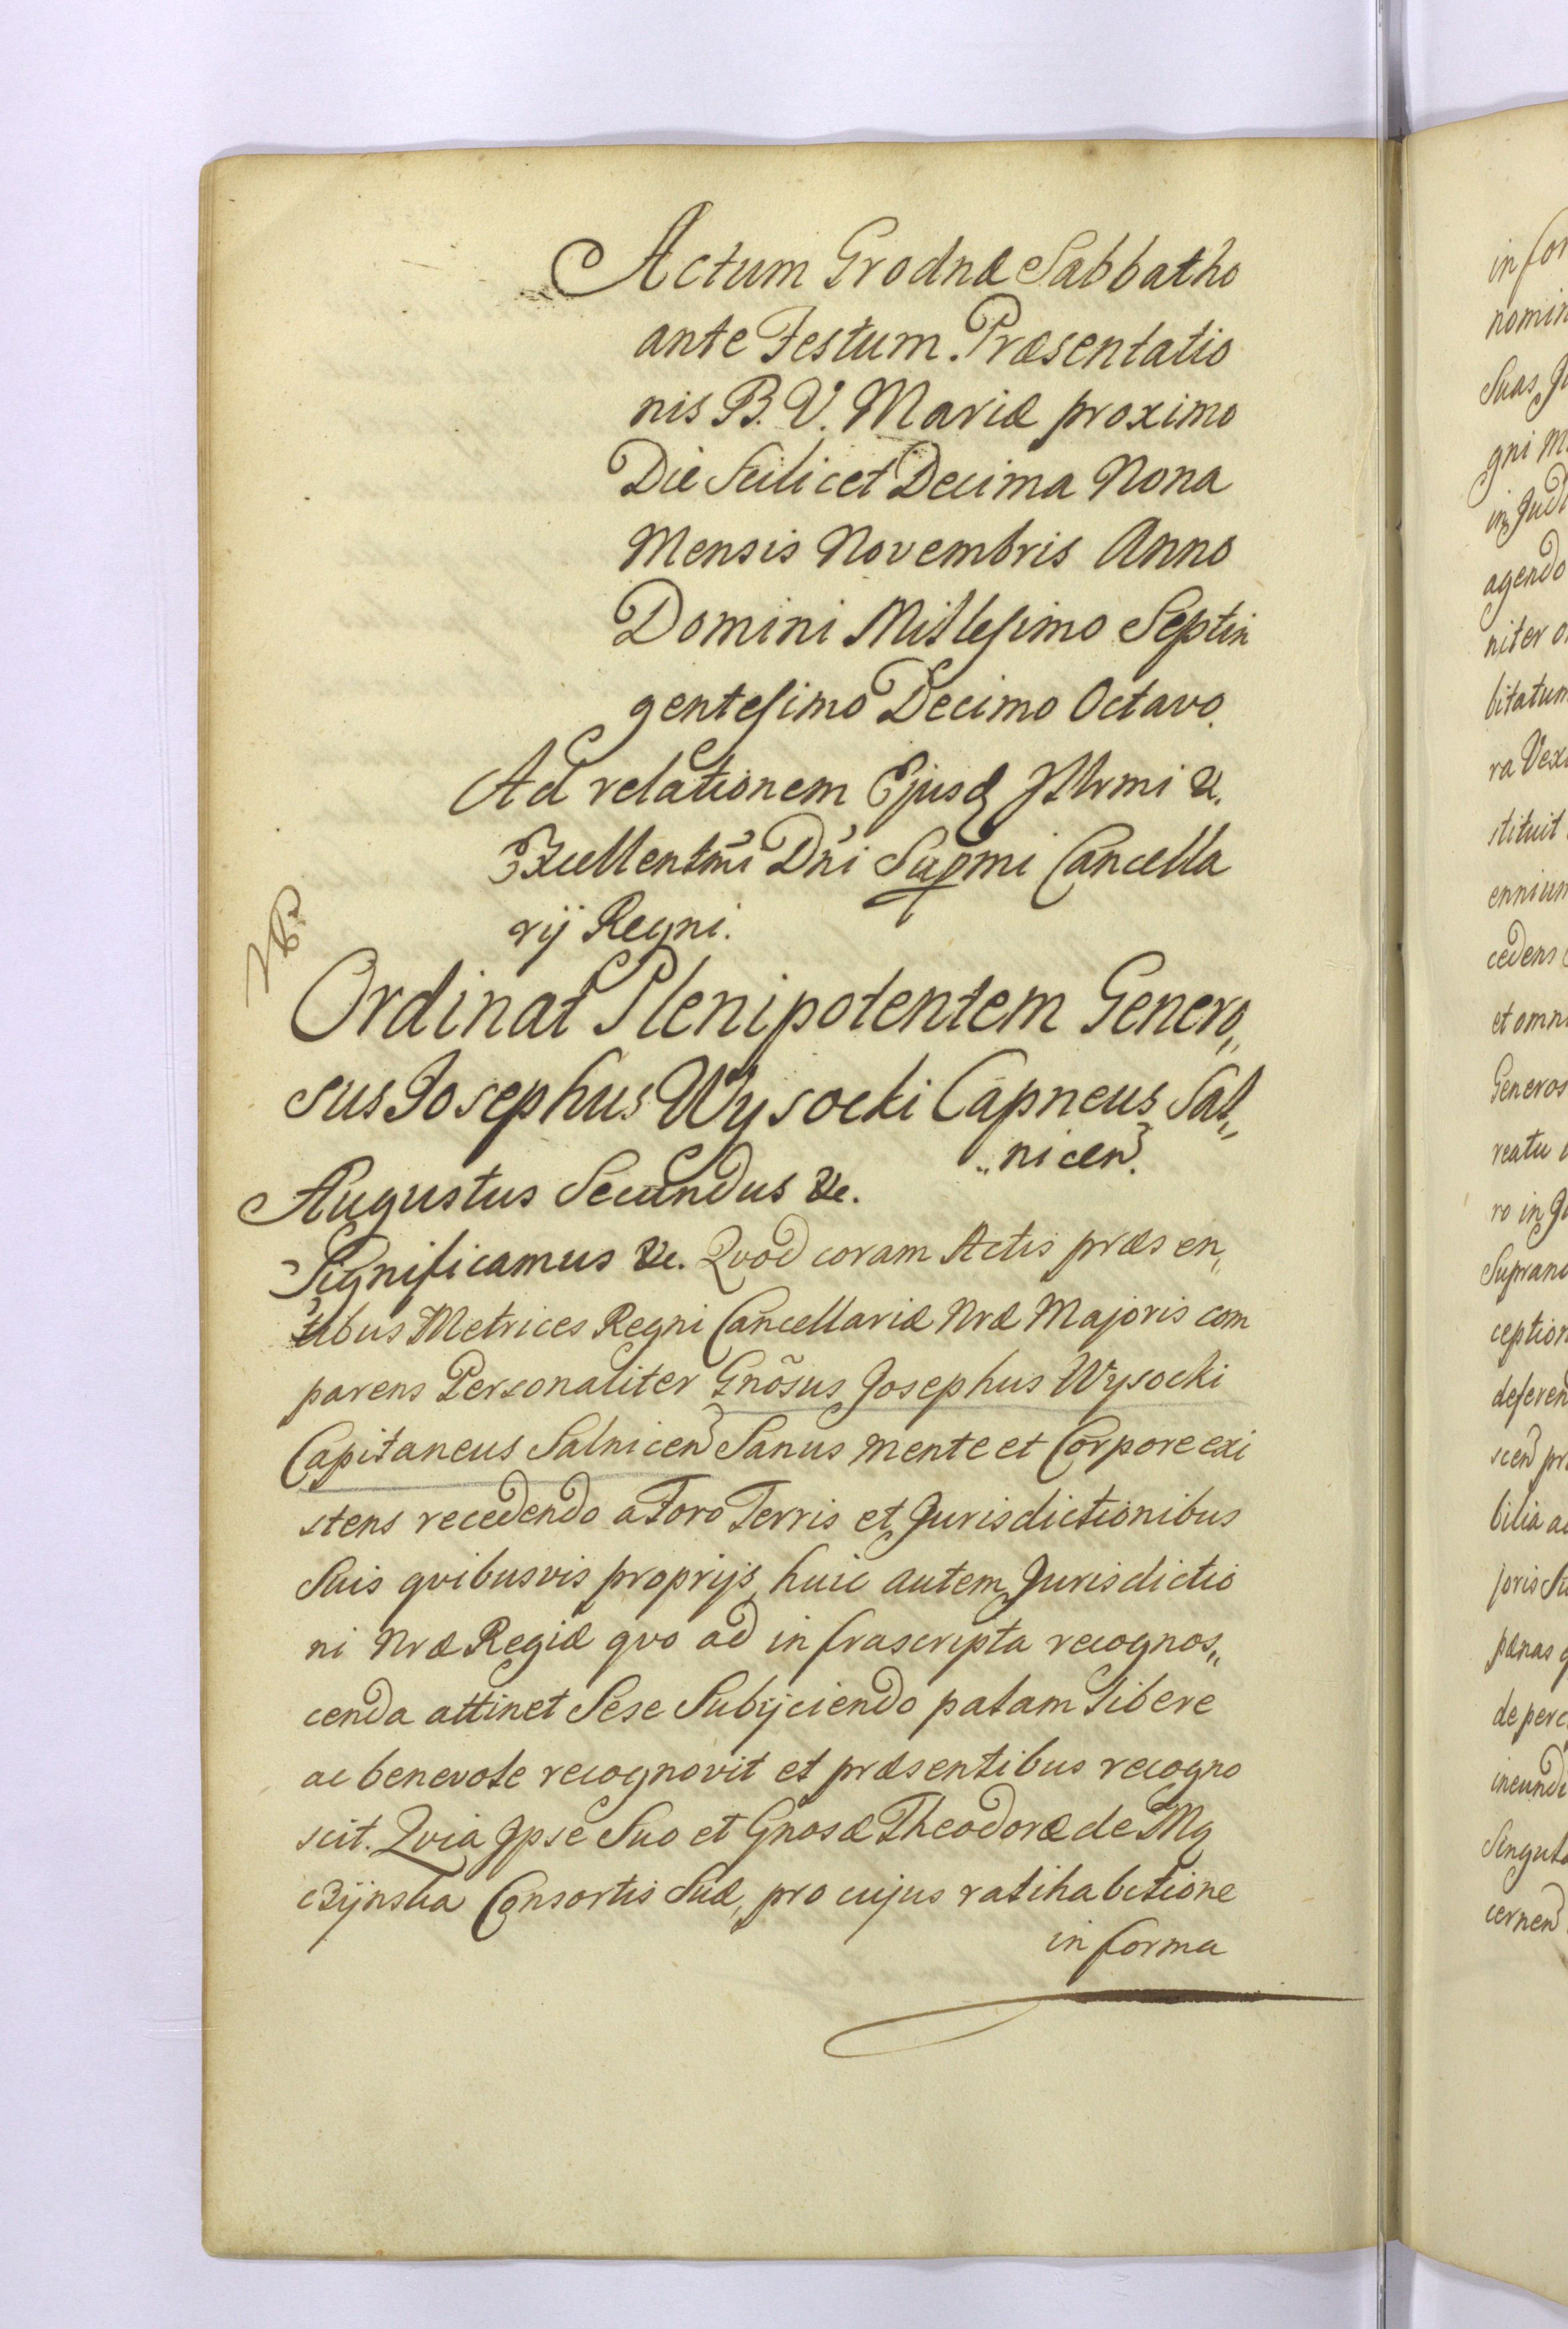 Actum Grodnæ Sabbatho
ante Festum Præsentatio
nis B. V. Mariæ proximo
Die Scilicet Decima Nona
Mensis Novembris Anno
Domini Millesimo Septin
gentesimo Decimo Octavo.
Ad relationem Ejusd Illrmi &.
Excellentmi Dni Supmi Cancella
rij Regni.
Ordinat Plenipotentem Genero„
sus Josephus Wysocki Capneus Sal„
„nicen.
Augustus Secundus &c.
Significamus &c. Qvod coram Actis præsen„
tibus Metrices Regni Cancellariæ Nræ Majoris com
parens Personaliter Gnõsus Josephus Wysocki
Capitaneus Salnicen Sanus mente et Corpore exi
stens recedendo a Foro Terris et Jurisdictionibus
Suis qvibusvis proprijs, huic autem Jurisdictio
ni Nræ Regiæ qvo ad infrascripta recognos„
cenda attinet Sese Subijciendo palam libere
ac benevole recognovit et præsentibus recogno
scit. Qvia Ipse Suo et Gnosæ Theodoræ de
Consortis Suæ, pro cujus ratihabitione
in forma
in for
nomin
Suas
gni M
agendo
niter
bitatum
ra Vex
stituit
ennium
cedens
et omn
Generos
reatu
ro in
Suprano
ception
deferen
scen
bilia
joris
pænas
de perc
ineund
Singul
cernen